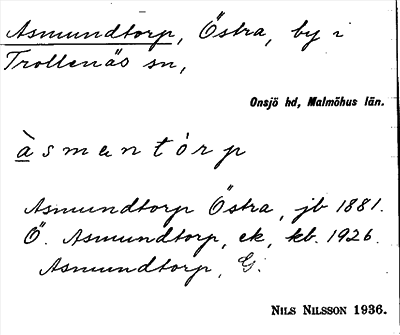 Asmundtorp, Östra, by i
Trollenäs sn,
Onsjö hd, Malmöhus län.
àsmentórp
Asmundtorp Östra, jb 1881.
Ö. Asmundtorp, ek, kb. 1926.
Asmundtorp, G.
NILS NILSSON 1936.